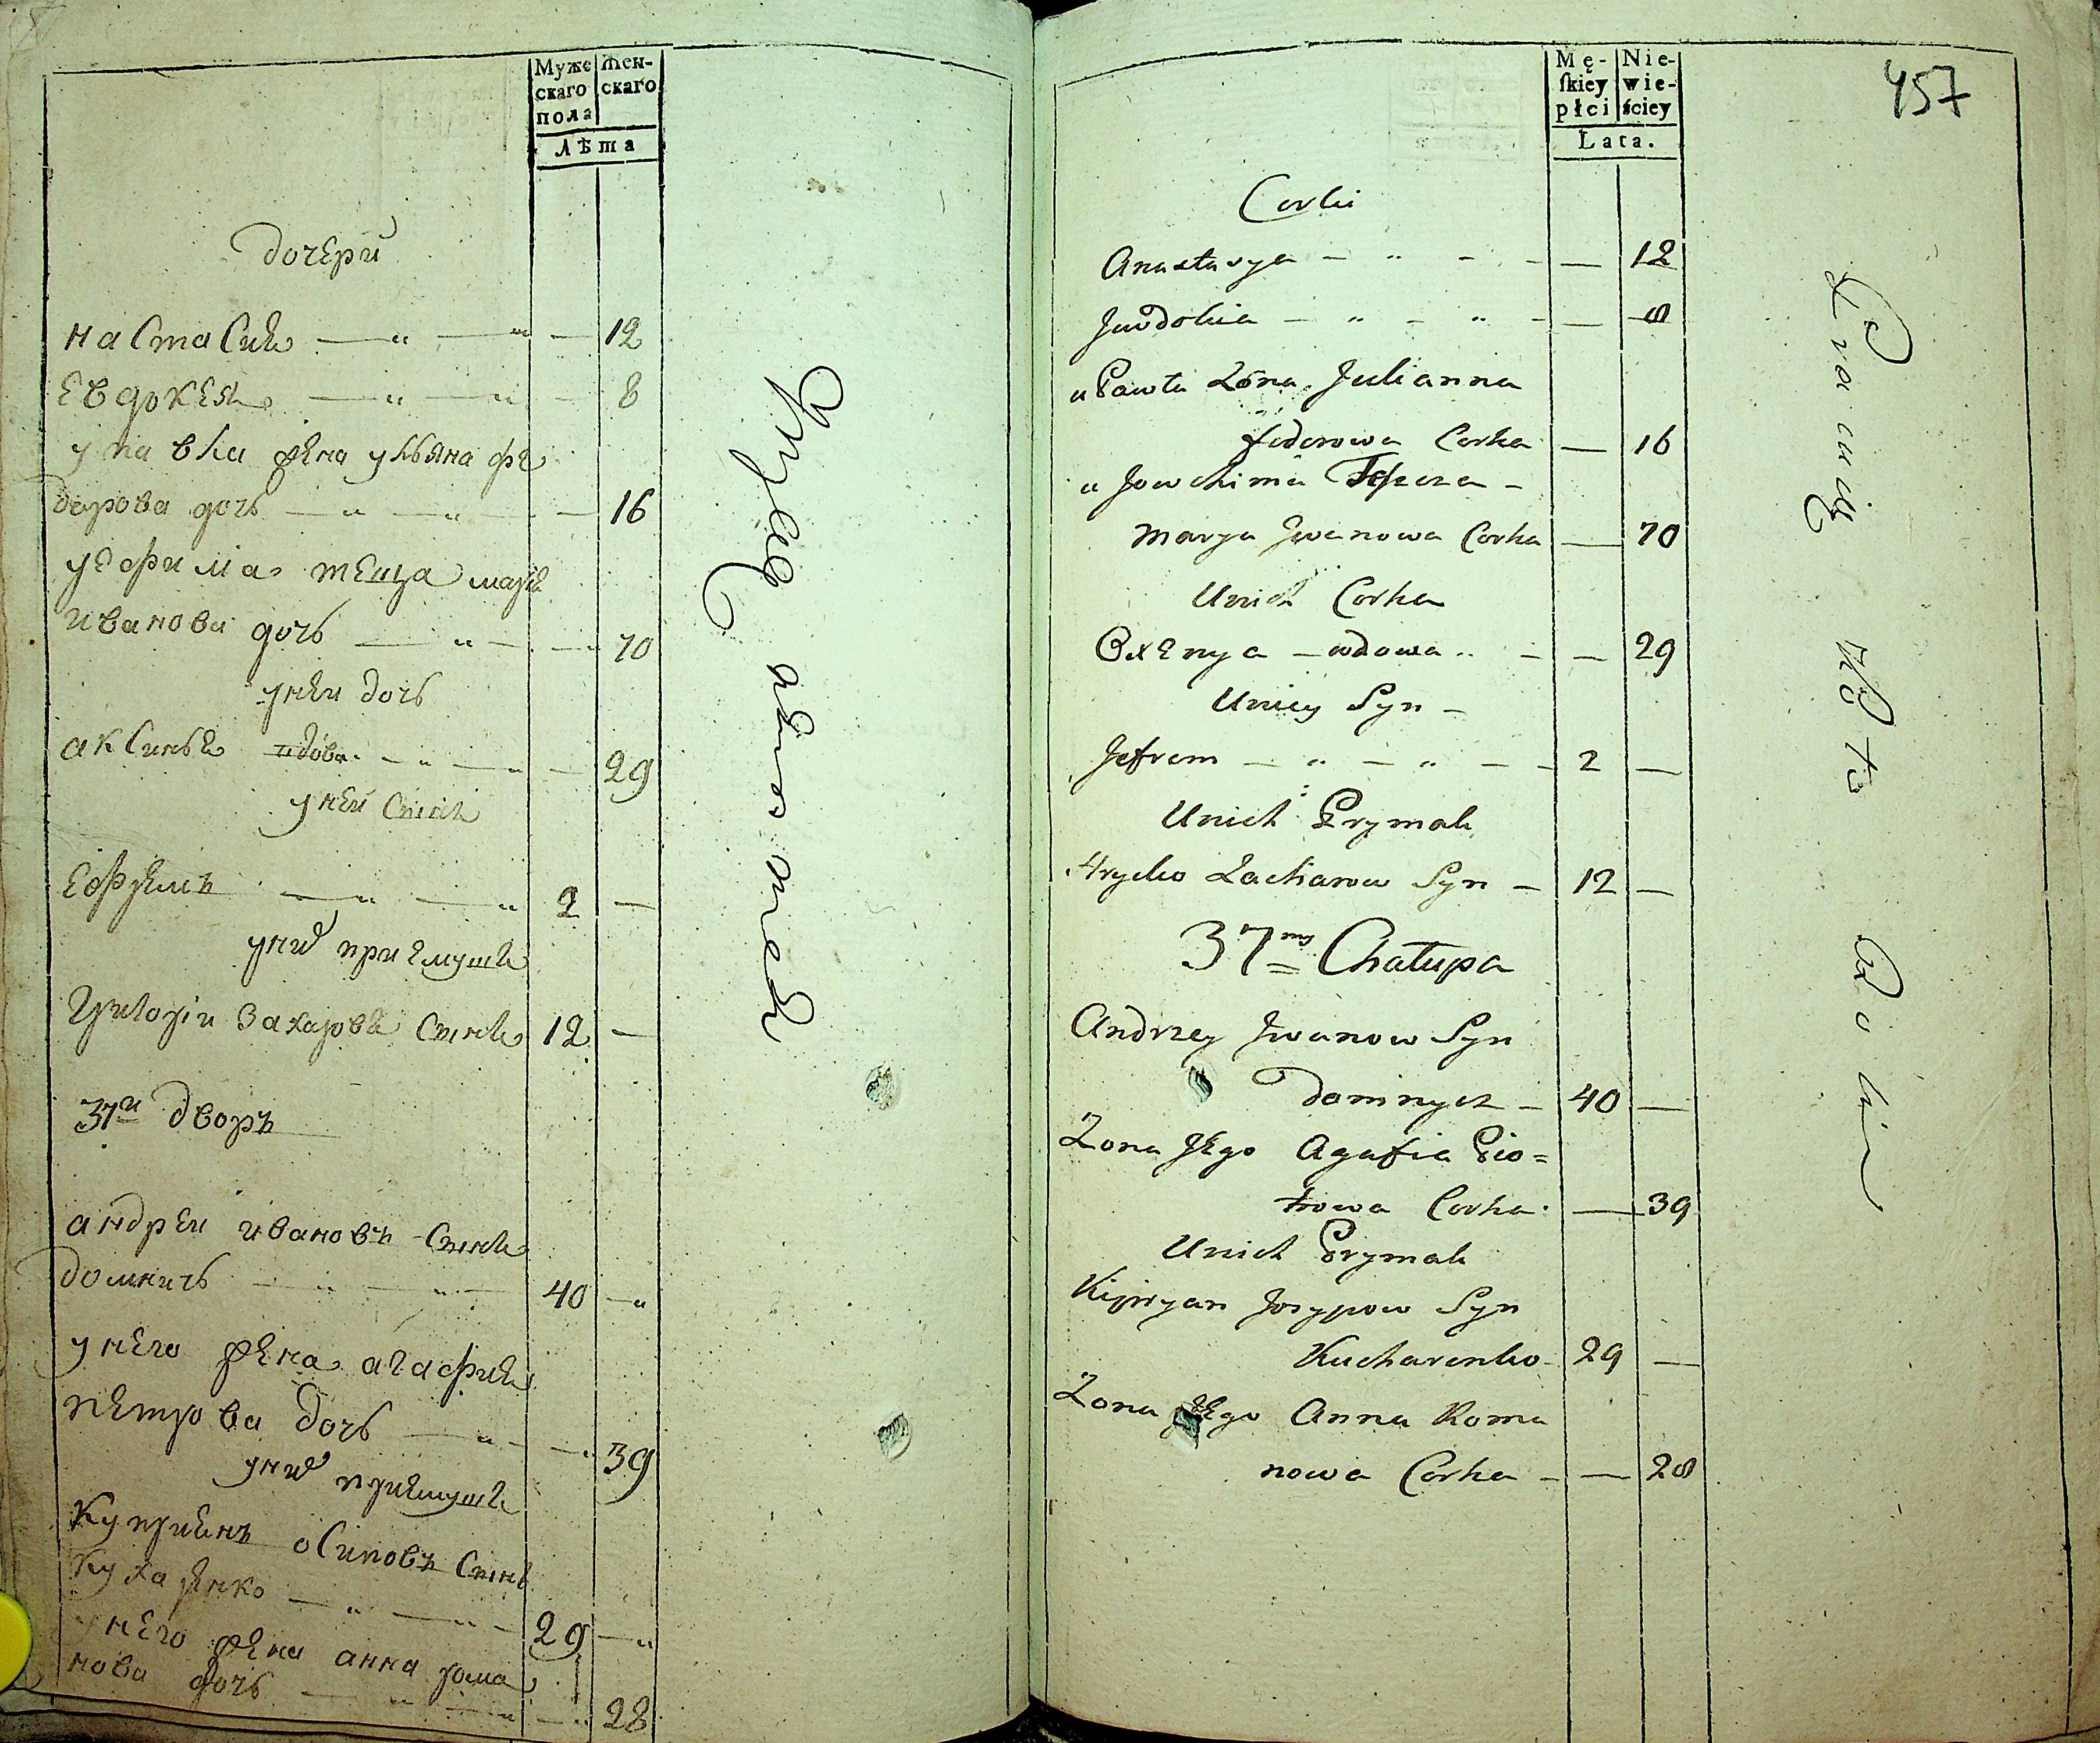 Муже
скаго
пола
Жен-
скаго
Лѣта
дочери
настасия — „ — „ — 12
евдокея — „ — „ — 8
у павла жена ульяна фе
дорова дочь — „ — „ — 16
у ефима теща марья
иванова дочь — „ — „ 70
у ней дочь
аксинья вдова — „ — „ — 29
у ней сынъ
ефремъ — „ — „ 2 —
у них приемышъ
Григорiй Захаровъ сынъ 12 —
37й дворъ
андрей ивановъ сынъ
домничь — „ — „ — 40 — „
у него жена агафия
петрова дочь — „ — „ 39
у них приемышъ
куприянъ осиповъ сынъ
кухаренко — „ — „ — 29 — „
у него жена анна рома
нова дочь — „ — „ — „ 28
Mę-
skiey
płci
Nie-
wie-
ściey
Lata.
457
Corki
Anastasya — „ — — 12
Jewdokia — „ — „ — — 8
u Pawła Żona Julianna
Fedorowa Corka — 16
u Jowchima Tescza —
Marya Jwanowa Corka — 70
Unich Corka
Oxenya — wdowa „ — — 29
Uniey Syn —
Jefrem — „ — „ — — 2 —
Unich Prymak
Hryćko Zacharow Syn — 12 —
37my Chałupa
Andrzey Jwanow Syn
Domnycz — 40 —
Żona Jego Agafia Pio=
trowa Corka — 39
Unich Prymak
Kipryan Josypow Syn
Kucharenko 29 —
Żona Jego Anna Roma
nowa Corka — — 28